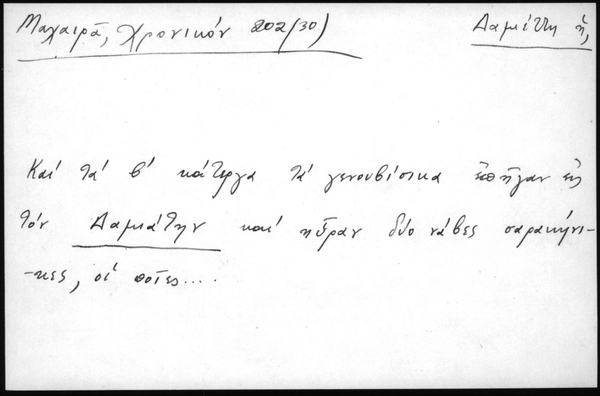 Μαχαιρᾶ, Χρονικόν 202 (30)
Δαμιάτη ἡ,
Καί τά β' κάτεργα τά γενουβίσικα ἐπῆγαν εἰς
τόν Δαμιάτην καί ηὗραν δύο νάβες σαρακήνι-
-κες, οἱ ποῖες....